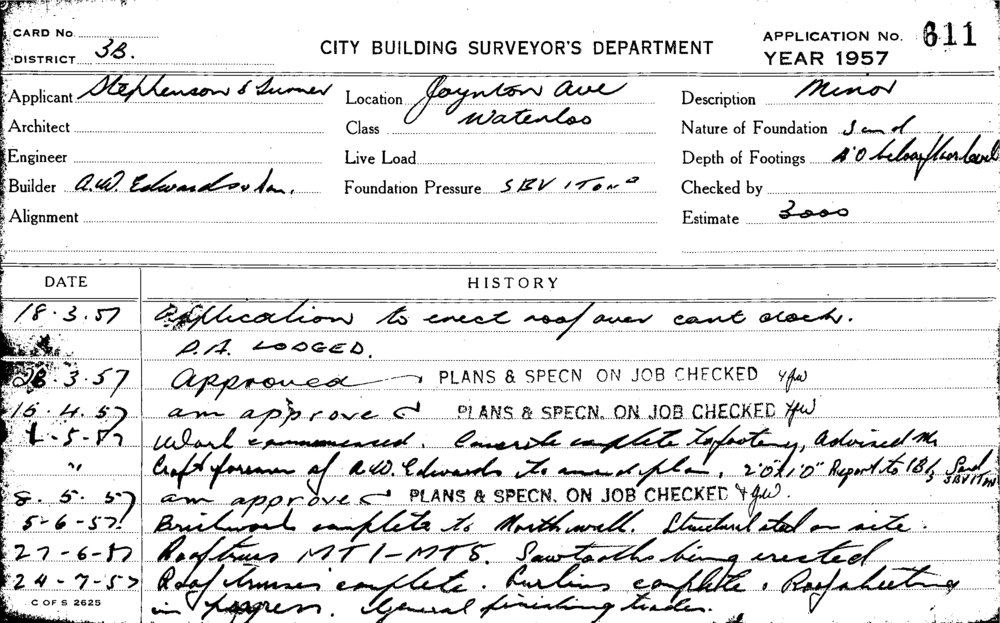 CARD No.
DISTRICT 3B.
CITY BUILDING SURVEYOR'S DEPARTMENT
APPLICATION No. 611
YEAR 1957
Applicant Stephenson & Turner
Location Joynton Ave
Waterloo
Description Minor
Architect
Class
Nature of Foundation Sand
Engineer
Live Load
Depth of Footings 4'0 below floor level
Builder A.W. Edwards & Son.
Foundation Pressure SBV 1 TON
Checked by
Alignment
Estimate 3000
DATE HISTORY
18.3.57 Application to erect roof over cart dock.
D.A. LODGED.
28.3.57 Approved PLANS & SPECN ON JOB CHECKED
15.4.57 am approved PLANS & SPECN. ON JOB CHECKED
1-5-57 Work commenced. Concrete complete to footing, Advised Mr
" Croft foreman of A.W. Edwards to amend plan. 2'0"x1'0" Report to Sand SBV 1 TON
8.5.57 am approved PLANS & SPECN. ON JOB CHECKED
5-6-57. Brickwork complete to North wall. Structural steel on site.
27-6-57 Roof truss MT1-MT5. Sawtooths being erected
24-7-57 Roof trusses complete. Purlins complete. Roof sheeting
in progress. General finishing trades.
C OF S 2625